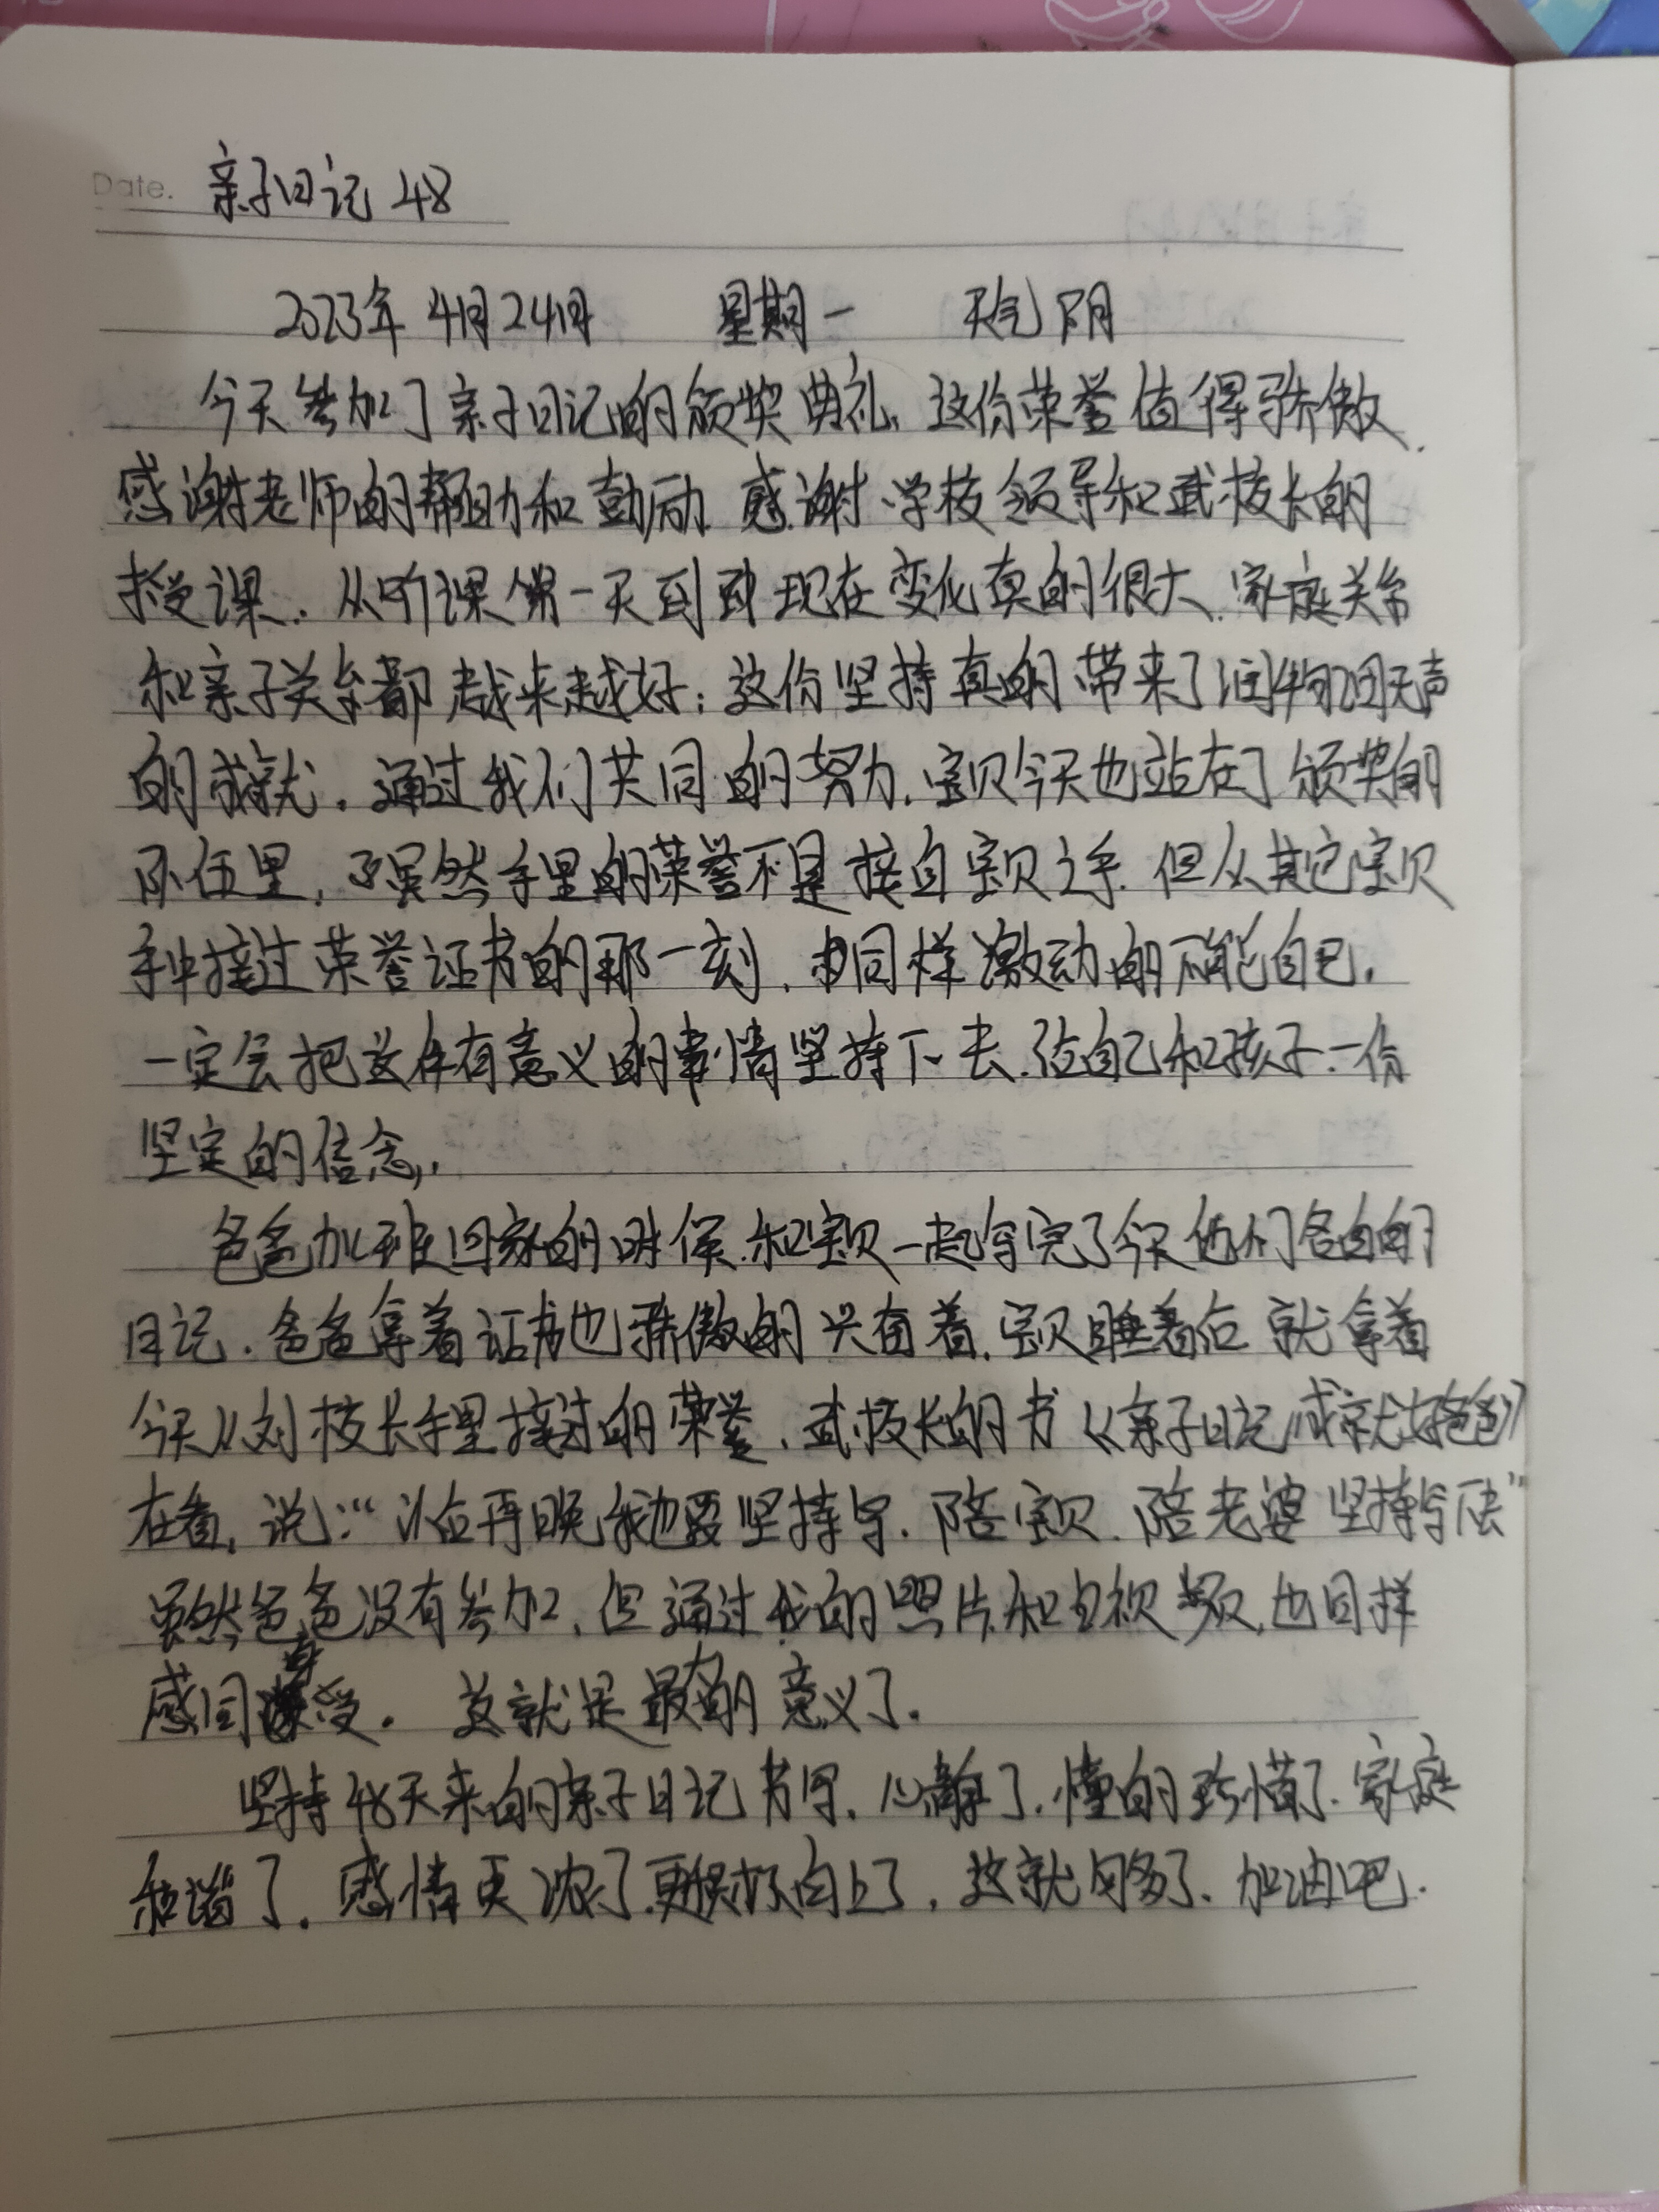 Date. 亲子日记 48
2023年4月24日 星期一 天气 阴
今天参加了亲子日记的颁奖典礼, 这份荣誉值得骄傲.
感谢老师的帮助和鼓励. 感谢学校领导和武校长的
授课. 从听课第一天到现在变化真的很大. 家庭关系
和亲子关系都越来越好; 这份坚持真的带来了润物细无声
的成就. 通过我们共同的努力. 宝贝今天也站在了颁奖的
队伍里, 虽然手里的荣誉不是接自宝贝之手. 但从其它宝贝
手中接过荣誉证书的那一刻. 也同样激动的不能自已.
一定会把这件有意义的事情坚持下去. 给自己和孩子一份
坚定的信念.
爸爸加班回家的时候. 和宝贝一起写完了今天他们各自的
日记. 爸爸拿着证书也骄傲的兴奋着. 宝贝睡着后就拿着
今天从刘校长手里接过的荣誉. 武校长的书《亲子日记成就好爸爸》
在看, 说:“以后再晚我也要坚持写. 陪宝贝. 陪老婆坚持写下去”
虽然爸爸没有参加, 但通过我的照片和视频, 也同样
感同身受. 这就是最有的意义了.
坚持48天来的亲子日记书写. 心静了. 懂的珍惜了. 家庭
和谐了. 感情更浓了. 更积极向上了, 这就够了. 加油吧.